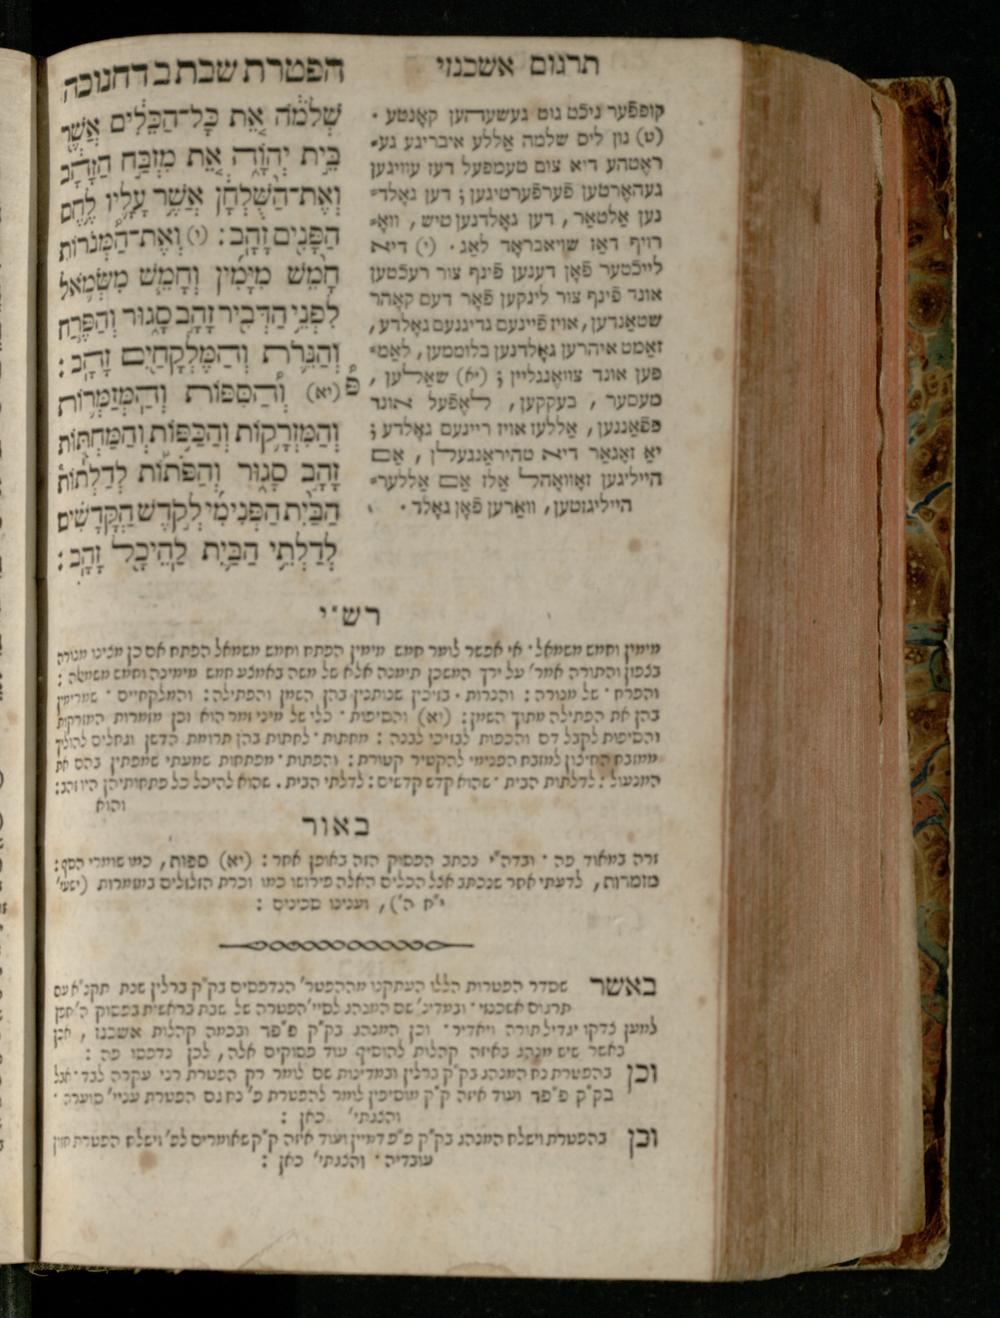 תרגום אשכנזי
קופפֿער ניכֿט גוט געשעדהען קאָנטע .
(ט) נון ליס שלמה אַללע איבריגע גע=
ראָטהע דיא צום טעמפעל דעז עוויגען
געהאָרטען פֿערפֿערטיגען ; דען גאָלד=
נען אַלטאַר , דען גאָלדנען טיש , וואָ=
רויף דאַז שויאבראָד לאַג . (י) דיא
לייכֿטער פֿאָן דענען פֿינף צור רעכֿטען
אונד פֿינף צור לינקען פֿאָר דעם קאָהר
שטאַנדען , אויז פֿיינעם גדיגנעם גאָלדע ,
זאַמט איהרען גאָלדנען בלוממען , לאַמ=
פען אונד צוואַנגליין ; (יא) שאַלען ,
מעסער , בעקקען , לאָפֿעל אונד
פפֿאַננען , אַללעז אויז ריינעם גאָלדע ;
יאַ זאָגאַר דיא טהיראַנגעלן , אַם
הייליגען זאָוואָהל אַלז אַם אַללער=
הייליגזטען , וואַרען פֿאָן גאָלד .
הפטרת שבת ב דחנוכה
שְׁלֹמֹה אֵת כָּל־הַכֵּלִים אֲשֶׁר
בֵּית יְהוָֹה אֵת מִזְבַּח הַזָּהָב
וְאֶת־הַשֻּׁלְחָן אֲשֶׁר עָלָיו לֶחֶם
הַפָּנִים זָהָב : (י) וְאֶת־הַמְּנֹרוֹת
חָמֵשׁ מִיָּמִין וְחָמֵשׁ מִשְּׂמֹאל
לִפְנֵי הַדְּבִיר זָהָב סָגוּר וְהַפֶּרַח
וְהַנֵּרֹת וְהַמֶּלְקָחַיִם זָהָב :
(יא) וְהַסִּפּוֹת וְהַמְזַמְּרוֹת
וְהַמִּזְרָקוֹת וְהַכַּפּוֹת וְהַמַּחְתּוֹת
זָהָב סָגוּר וְהַפֹּתוֹת לְדַלְתוֹת
הַבַּיִת הַפְּנִימִי לְקֹדֶשׁ הַקֳּדָשִׁים
לְדַלְתֵי הַבַּיִת לַהֵיכָל זָהָב :
רש"י
מימין וחמש משמאל · אי אפשר לומר חמש מימין הפתח וחמש משמאל הפתח אם כן מצינו מנורה
בצפון והתורה אמר' על ירך המשכן תימנה אלא של משה באמצע חמש מימינה וחמש משמאלה :
והפרח · של מנורה : והנרות · בזיכין שנותנין בהן השמן והפתילה : והמלקחיים · שמרימין
בהן את הפתילה מתוך השמן : (יא) והסיפות · כלי של מיני זמר הוא וכן מזמרות המזרקות
והסיפות לקבל דם והכפות לבזיכי לבנה : מחתות · לחתות בהן תרומת הדשן וגחלים להוליך
ממזבח החיצון למזבח הפנימי להקטיר קטורת : והפתות · מפתחות שמעתי שמפתין בהם את
המנעול : לדלתות הבית · שהוא קדש קדשים : לדלתי הבית . שהוא להיכל כל פתחותיהן היו זהב :
והוא
באור
זרה במאוד פה · ובדה"י נכתב הפסוק הזה באופן אחר : (יא) ספות , כמו שומרי הסף :
מזמרות , לדעתי אחר שנכתב אצל הכלים האלה פירושו כמו וכרת הזלזלים במזמרות (ישעי'
י"ח ה') , וענינו סכינים :
באשר שסדר הפטרות הללו העתקנו מההפטר' הנדפסים בק"ק ברלין שנת תקנ"א עם
תרגום אשכנזי · ובמדינ' שם המנהג לסיי' הפטרה של שבת בראשית בפסוק ה' חפץ
למען צדקו יגדיל תורה ויאדיר · וכן המנהג בק"ק פ"פר ובכמה קהלות אשכנז , אכן
באשר שיש מנהג באיזה קהלות להוסיף עוד פסוקים אלה , לכן נדפסו פה :
וכן בהפטרת נח המנהג בק"ק ברלין ובמדינות שם לומר רק הפטרת רני עקרה לבד · אבל
בק"ק פ"פר ועוד איזה ק"ק מוסיפין לומר להפטרת פ' נח גם הפטרת עניי' סוערה ·
והצגתי' כאן :
וכן בהפטרת וישלח המנהג בק"ק פ"פ דמיין ועוד איזה ק"ק שאומרים לפ' וישלח הפטרת חזון
עובדיה · והצגתי' כאן :